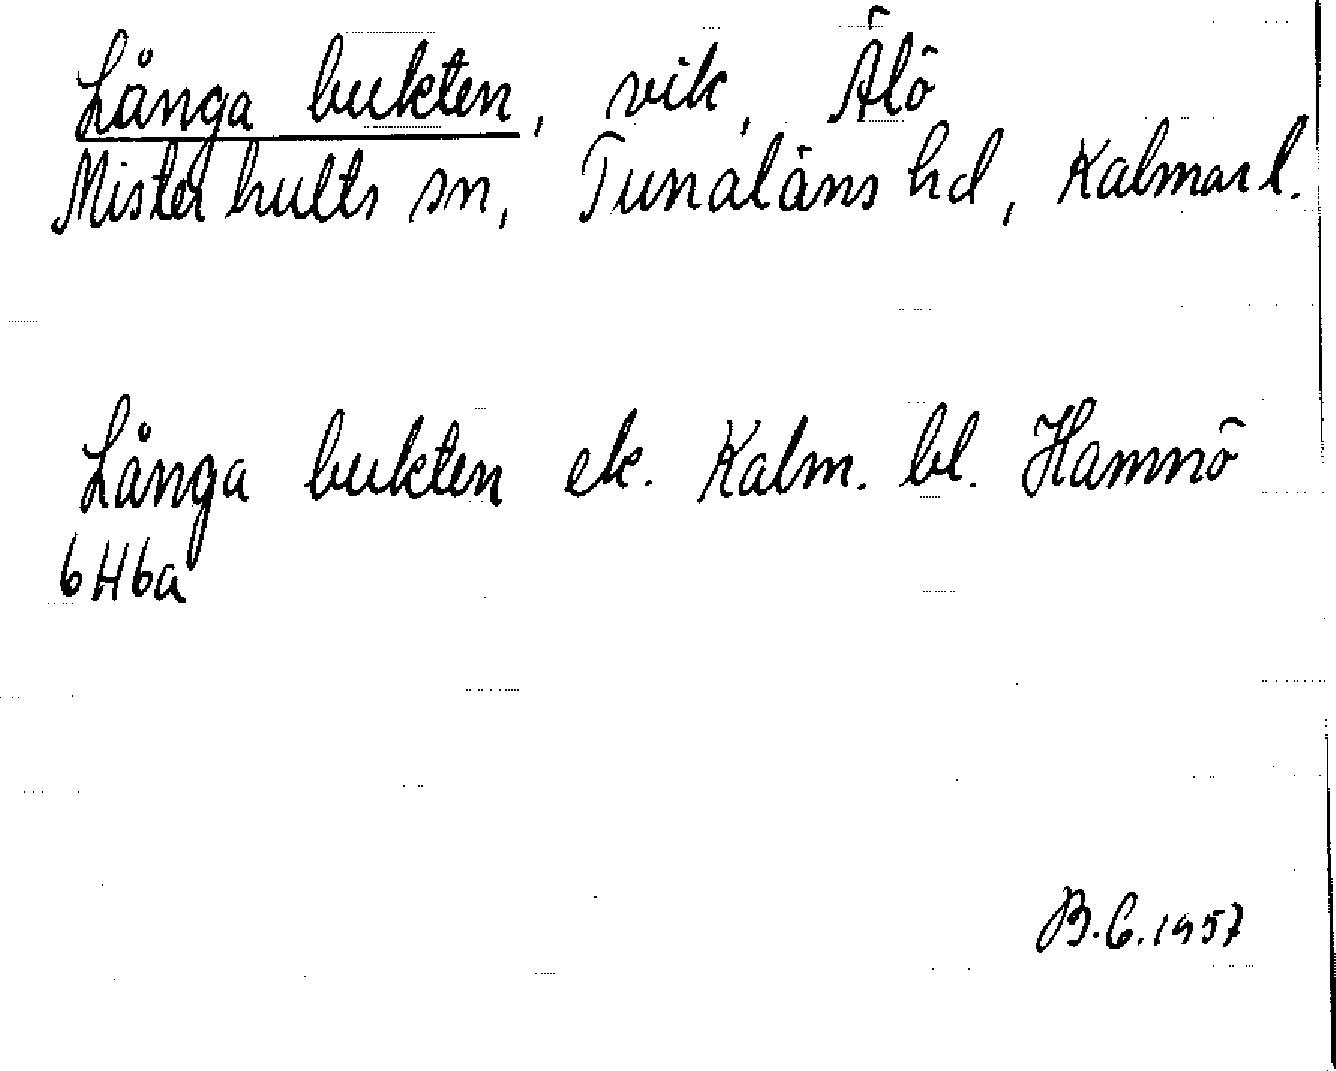 Långa bukten, vik, Älö
Misterhults sn, Tunaläns hd, Kalmar l.
Långa bukten ek. Kalm. bl. Hamnö
6H6a
B.G.1957